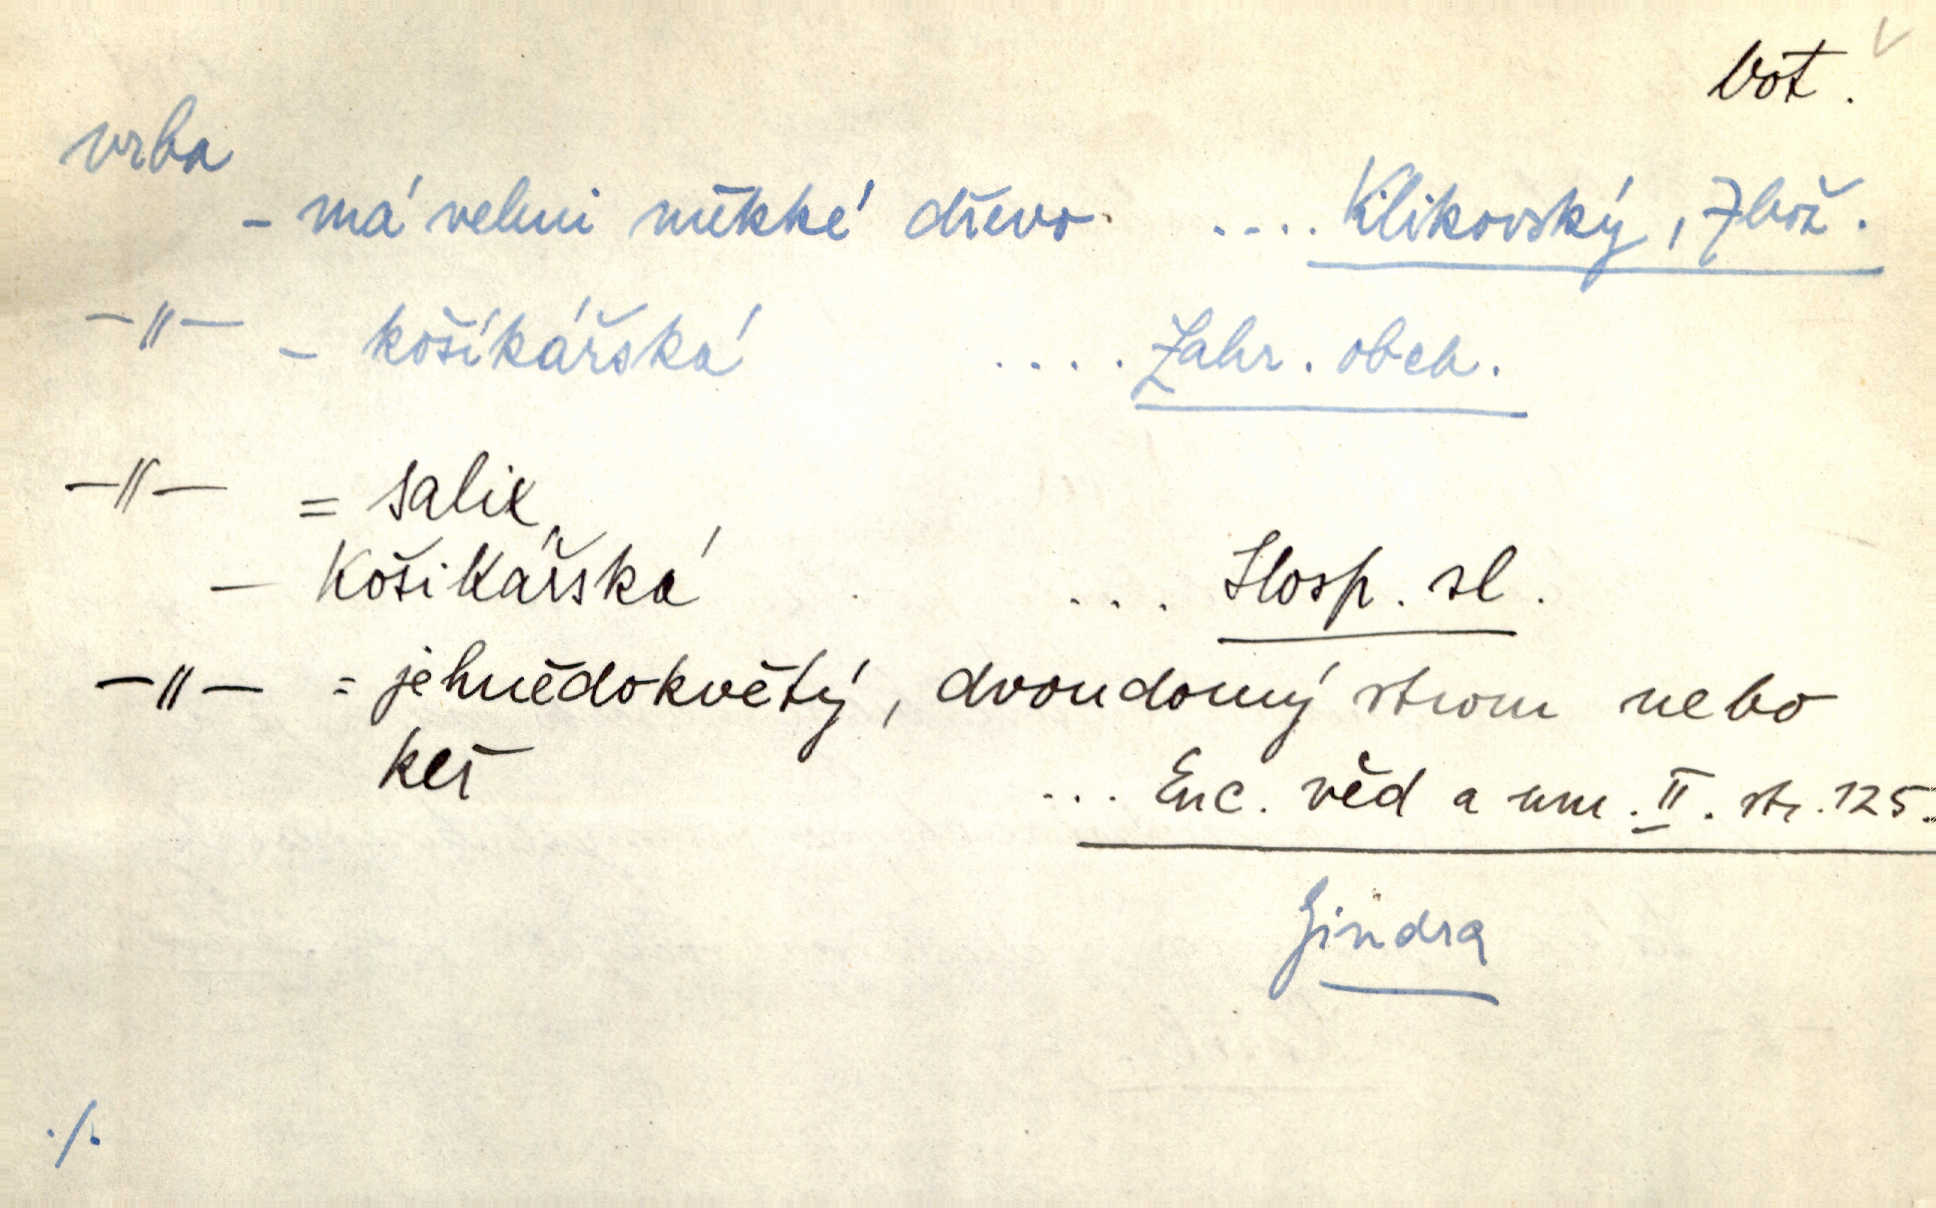 bot.
vrba
- má velmi měkké dřevo .... Klikovský, Zbož.
-"- - košíkářská .... Zahr. obch.
-"- = salix
- Košíkářská ... Hosp. sl.
-"- = jehnědokvětý, dvoudomý strom nebo
keř ... Enc. věd a um. II. str. 125.
Jindra
./.